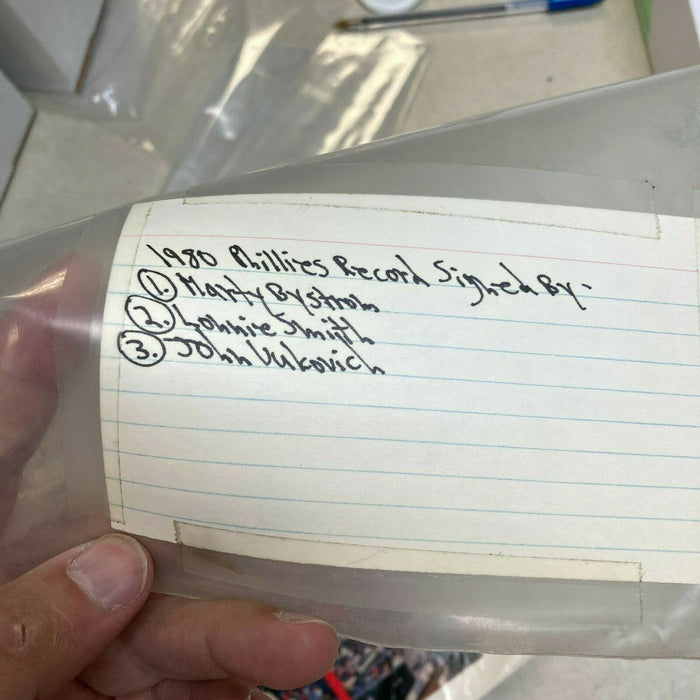 1980 Phillies Record Signed By-
1. Marty Bystrom
2. Lonnie Smith
3. John Vukovich